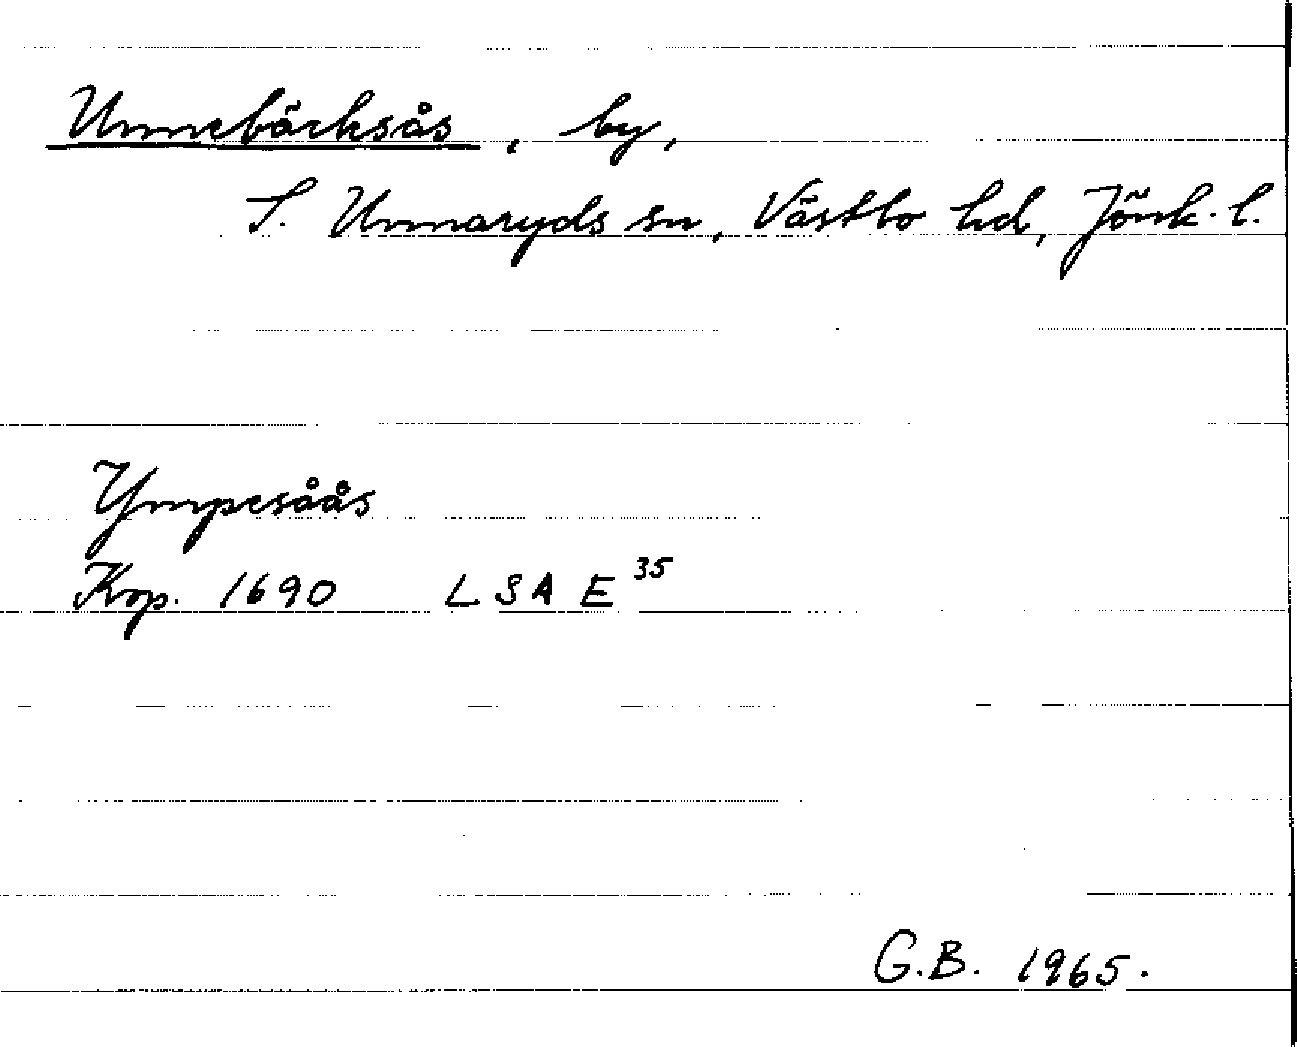 Unnebäcksås, by,
S. Unnaryds sn, Västbo hd, Jönk. l.
Ympesåås
Kop. 1690 LSA E 35
G.B. 1965.